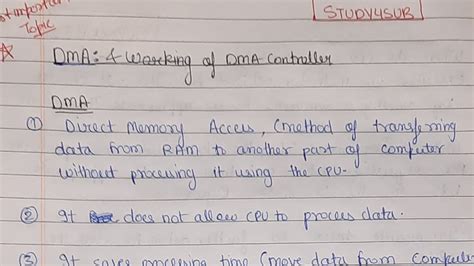 STUDY4SUB
Topic
DMA: & Working of DMA Controller
DMA
① Direct Memory Access, (method of transferring
data from RAM to another part of computer
without processing it using the CPU.
② It does not allow CPU to process data.
③ It saves processing time (move data from